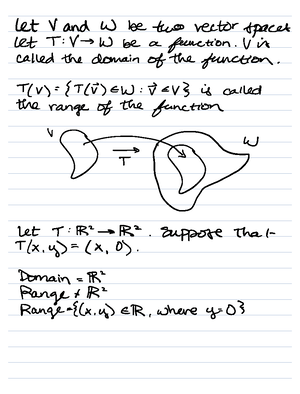 Let V and W be two vector spaces
Let T: V → W be a function. V is
called the domain of the function.
T(V) = {T(v⃗) ∈ W : v⃗ ∈ V} is called
the range of the function
V
W
T
Let T: ℝ² → ℝ². Suppose that
T(x, y) = (x, 0).
Domain = ℝ²
Range ≠ ℝ²
Range = {(x, y) ∈ ℝ, where y = 0}